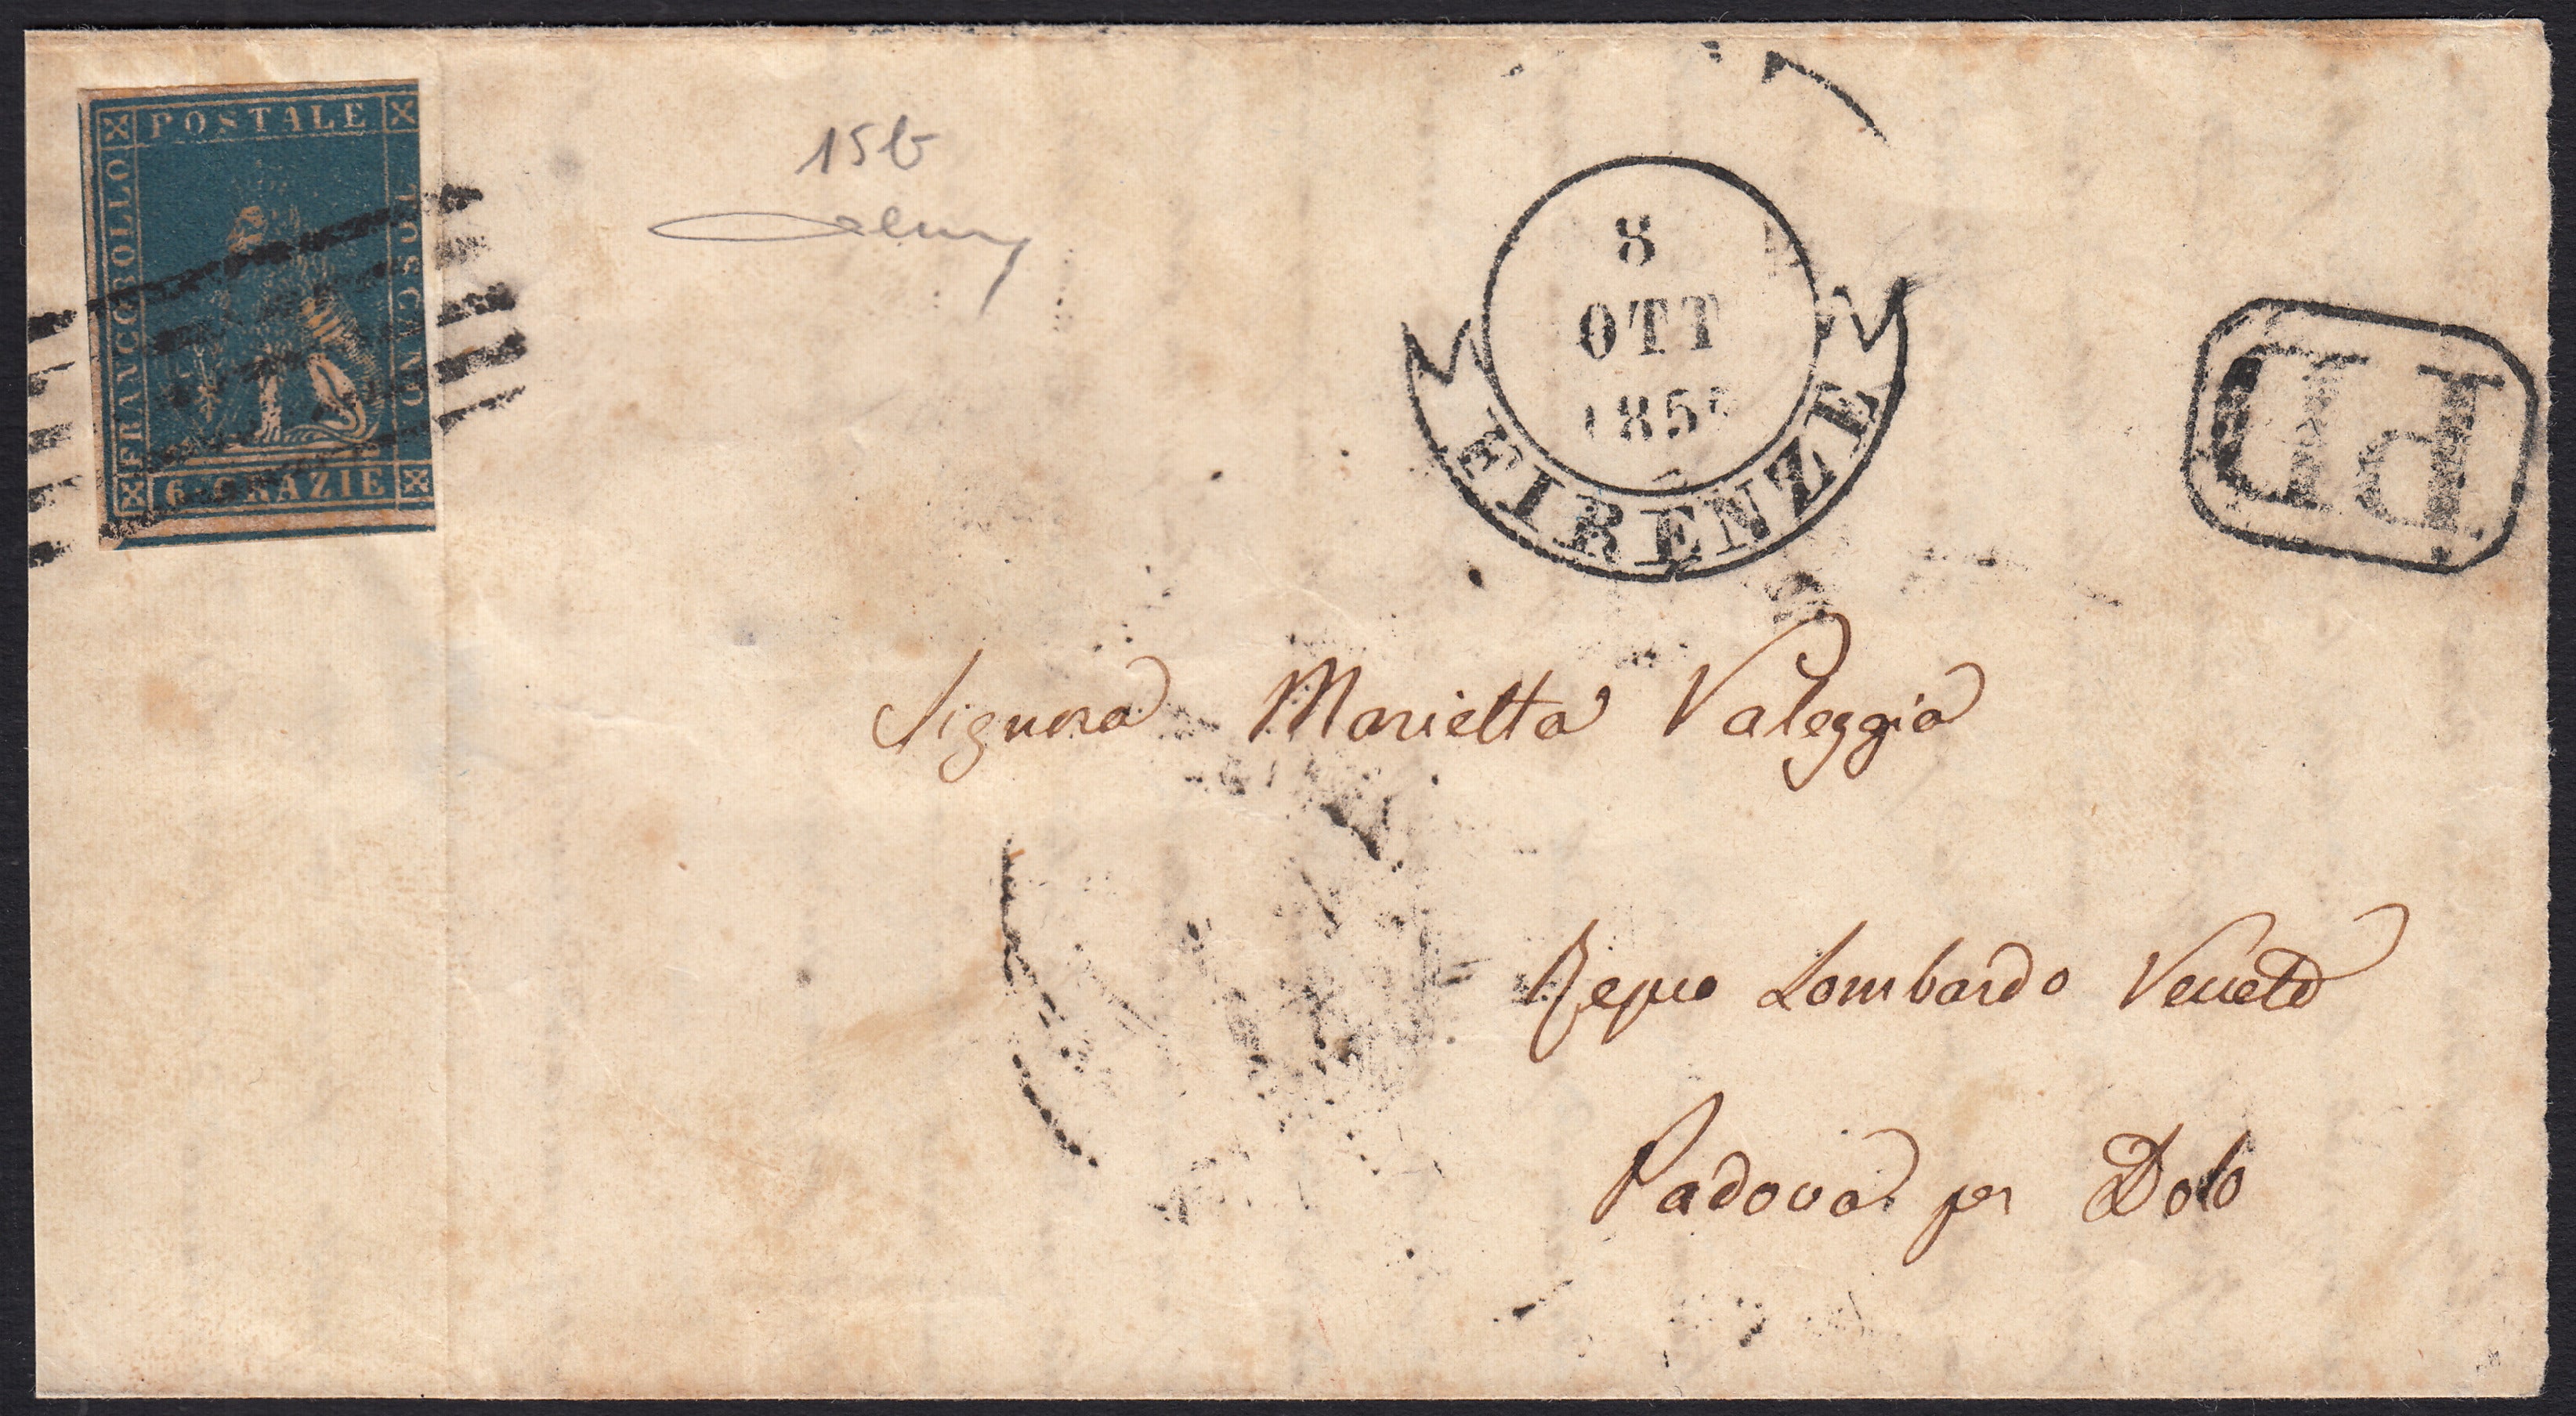 POSTALE
FRANCOBOLLO
TOSCANO
6 CRAZIE
15b
8
OTT
FIRENZE
PD
Signora Marietta Valeggia
Regno Lombardo Veneto
Padova per Dolo